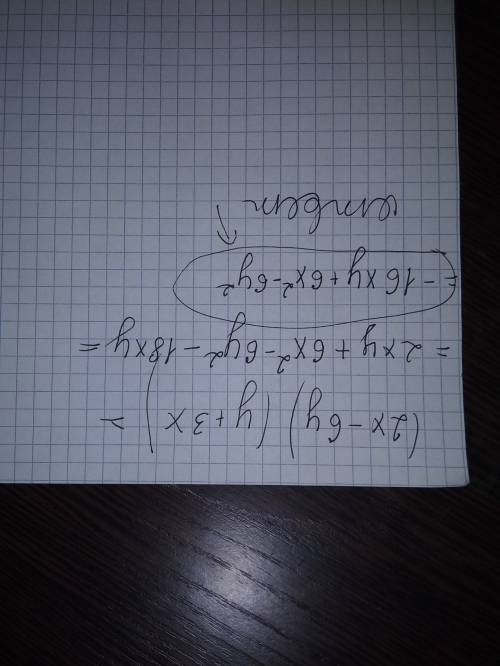 (2x-6y)(y+3x)=
=2xy+6x²-6y²-18xy=
=-16xy+6x²-6y²
ответ